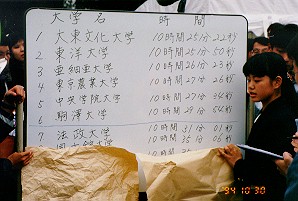 大学名 時間
1 大東文化大学 10時間25分22秒
2 東洋大学 10時間25分50秒
3 亜細亜大学 10時間26分23秒
4 東京農業大学 10時間27分26秒
5 中央学院大学 10時間27分34秒
6 駒澤大学 10時間29分54秒
7 法政大学 10時間31分01秒
10時間35分
'94 10 30